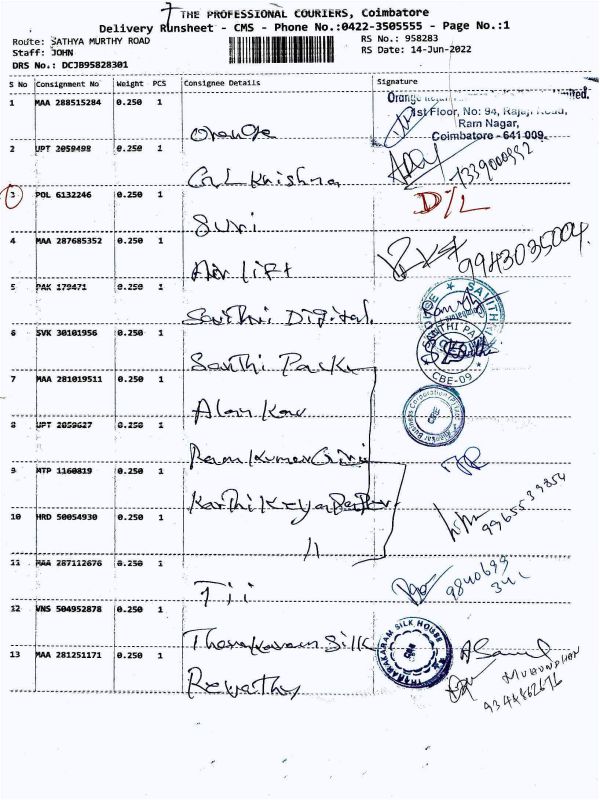 THE PROFESSIONAL COURIERS, Coimbatore
Delivery Runsheet - CMS - Phone No.:0422-3505555 - Page No.:1
Route: SATHYA MURTHY ROAD
Staff: JOHN
DRS No.: DCJB95828301
RS No.: 958283
RS Date: 14-Jun-2022
S No Consignment No Weight PCS Consignee Details Signature
1 MAA 288515284 0.250 1 Orange
1st Floor, No: 94, Rajaji Road,
Ram Nagar,
Coimbatore - 641 009.
2 UPT 2059498 0.250 1 Krishna
3 POL 6132246 0.250 1 Suri D/L
4 MAA 287685352 0.250 1 Air lift 9943035004.
5 PAK 179471 0.250 1 Savithri Digital.
6 SVK 30101956 0.250 1 Santhi
CBE-09
7 MAA 281019511 0.250 1
8 UPT 2059627 0.250 1 Ram Kumar
9 MTP 1160819 0.250 1 Karthikeya
10 HRD 50054930 0.250 1 11 9965539854
11 MAA 287112676 0.250 1 Tii 9840699
341
12 VNS 504952878 0.250 1 Silk
THARAKARAM SILK HOUSE
13 MAA 281251171 0.250 1 Revathy
MUKUNDHAN